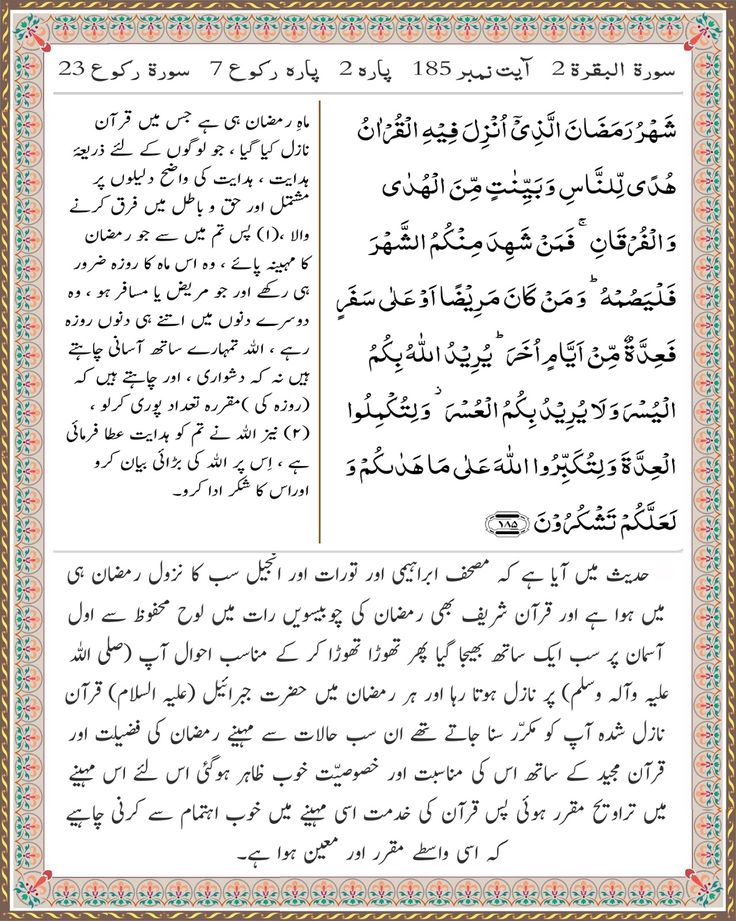 سورۃ البقرۃ 2 آیت نمبر 185 پارہ 2 پارہ رکوع 7 سورۃ رکوع 23
شَهۡرُ رَمَضَانَ الَّذِىۡٓ اُنۡزِلَ فِيۡهِ الۡقُرۡاٰنُ
هُدًى لِّلنَّاسِ وَ بَيِّنٰتٍ مِّنَ الۡهُدٰى
وَالۡفُرۡقَانِۚ فَمَنۡ شَهِدَ مِنۡكُمُ الشَّهۡرَ
فَلۡيَـصُمۡهُ ؕ وَمَنۡ کَانَ مَرِيۡضًا اَوۡ عَلٰى سَفَرٍ
فَعِدَّةٌ مِّنۡ اَيَّامٍ اُخَرَؕ يُرِيۡدُ اللّٰهُ بِکُمُ
الۡيُسۡرَ وَلَا يُرِيۡدُ بِکُمُ الۡعُسۡرَ ۡ وَلِتُکۡمِلُوا
الۡعِدَّةَ وَلِتُکَبِّرُوا اللّٰهَ عَلٰى مَا هَدٰٮكُمۡ وَ
لَعَلَّکُمۡ تَشۡكُرُوۡنَ ﴿۱۸۵﴾
ماہِ رمضان ہی ہے جس میں قرآن
نازل کیا گیا ، جو لوگوں کے لئے ذریعۂ
ہدایت ، ہدایت کی واضح دلیلوں پر
مشتمل اور حق و باطل میں فرق کرنے
والا ،(۱) پس تم میں سے جو رمضان
کا مہینہ پائے ، وہ اس ماہ کا روزہ ضرور
ہی رکھے اور جو مریض یا مسافر ہو ، وہ
دوسرے دنوں میں اتنے ہی دنوں روزہ
رہے ، اللہ تمہارے ساتھ آسانی چاہتے
ہیں نہ کہ دشواری ، اور چاہتے ہیں کہ
(روزہ کی )مقررہ تعداد پوری کرلو ،
(۲) نیز اللہ نے تم کو ہدایت عطا فرمائی
ہے ، اِس پر اللہ کی بڑائی بیان کرو
اوراس کا شکر ادا کرو۔
حدیث میں آیا ہے کہ مصحف ابراہیمی اور تورات اور انجیل سب کا نزول رمضان ہی
میں ہوا ہے اور قرآن شریف بھی رمضان کی چوبیسویں رات میں لوح محفوظ سے اول
آسمان پر سب ایک ساتھ بھیجا گیا پھر تھوڑا تھوڑا کر کے مناسب احوال آپ (صلی اللہ
علیہ وآلہ وسلم) پر نازل ہوتا رہا اور ہر رمضان میں حضرت جبرائیل (علیہ السلام) قرآن
نازل شدہ آپ کو مکرّر سنا جاتے تھے ان سب حالات سے مہینے رمضان کی فضیلت اور
قرآن مجید کے ساتھ اس کی مناسبت اور خصوصیّت خوب ظاہر ہوگئی اس لئے اس مہینے
میں تراویح مقرر ہوئی پس قرآن کی خدمت اسی مہینے میں خوب اہتمام سے کرنی چاہیے
کہ اسی واسطے مقرر اور معین ہوا ہے۔